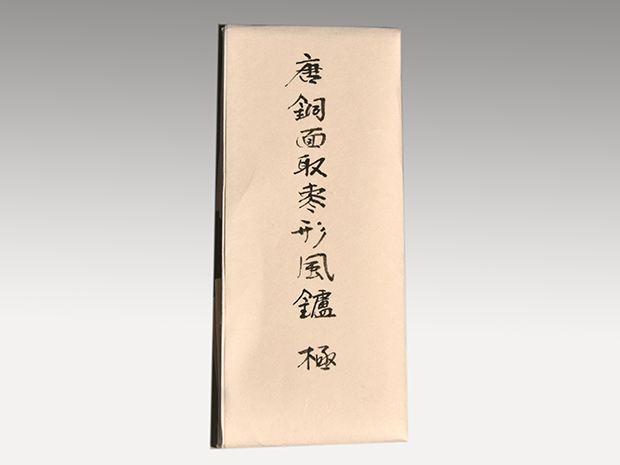 唐銅面取棗形風鑪 極